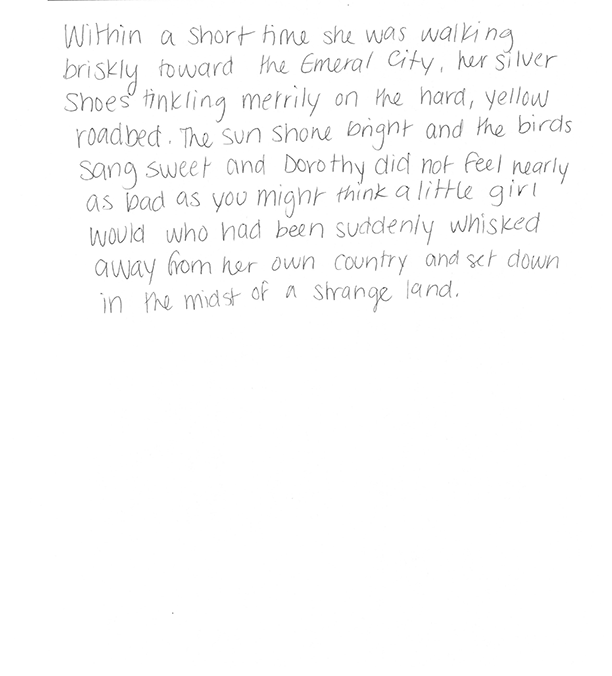 Within a short time she was walking
briskly toward the Emeral City, her silver
Shoes tinkling merrily on the hard, yellow
roadbed. The sun shone bright and the birds
sang sweet and Dorothy did not feel nearly
as bad as you might think a little girl
would who had been suddenly whisked
away from her own country and set down
in the midst of a strange land.